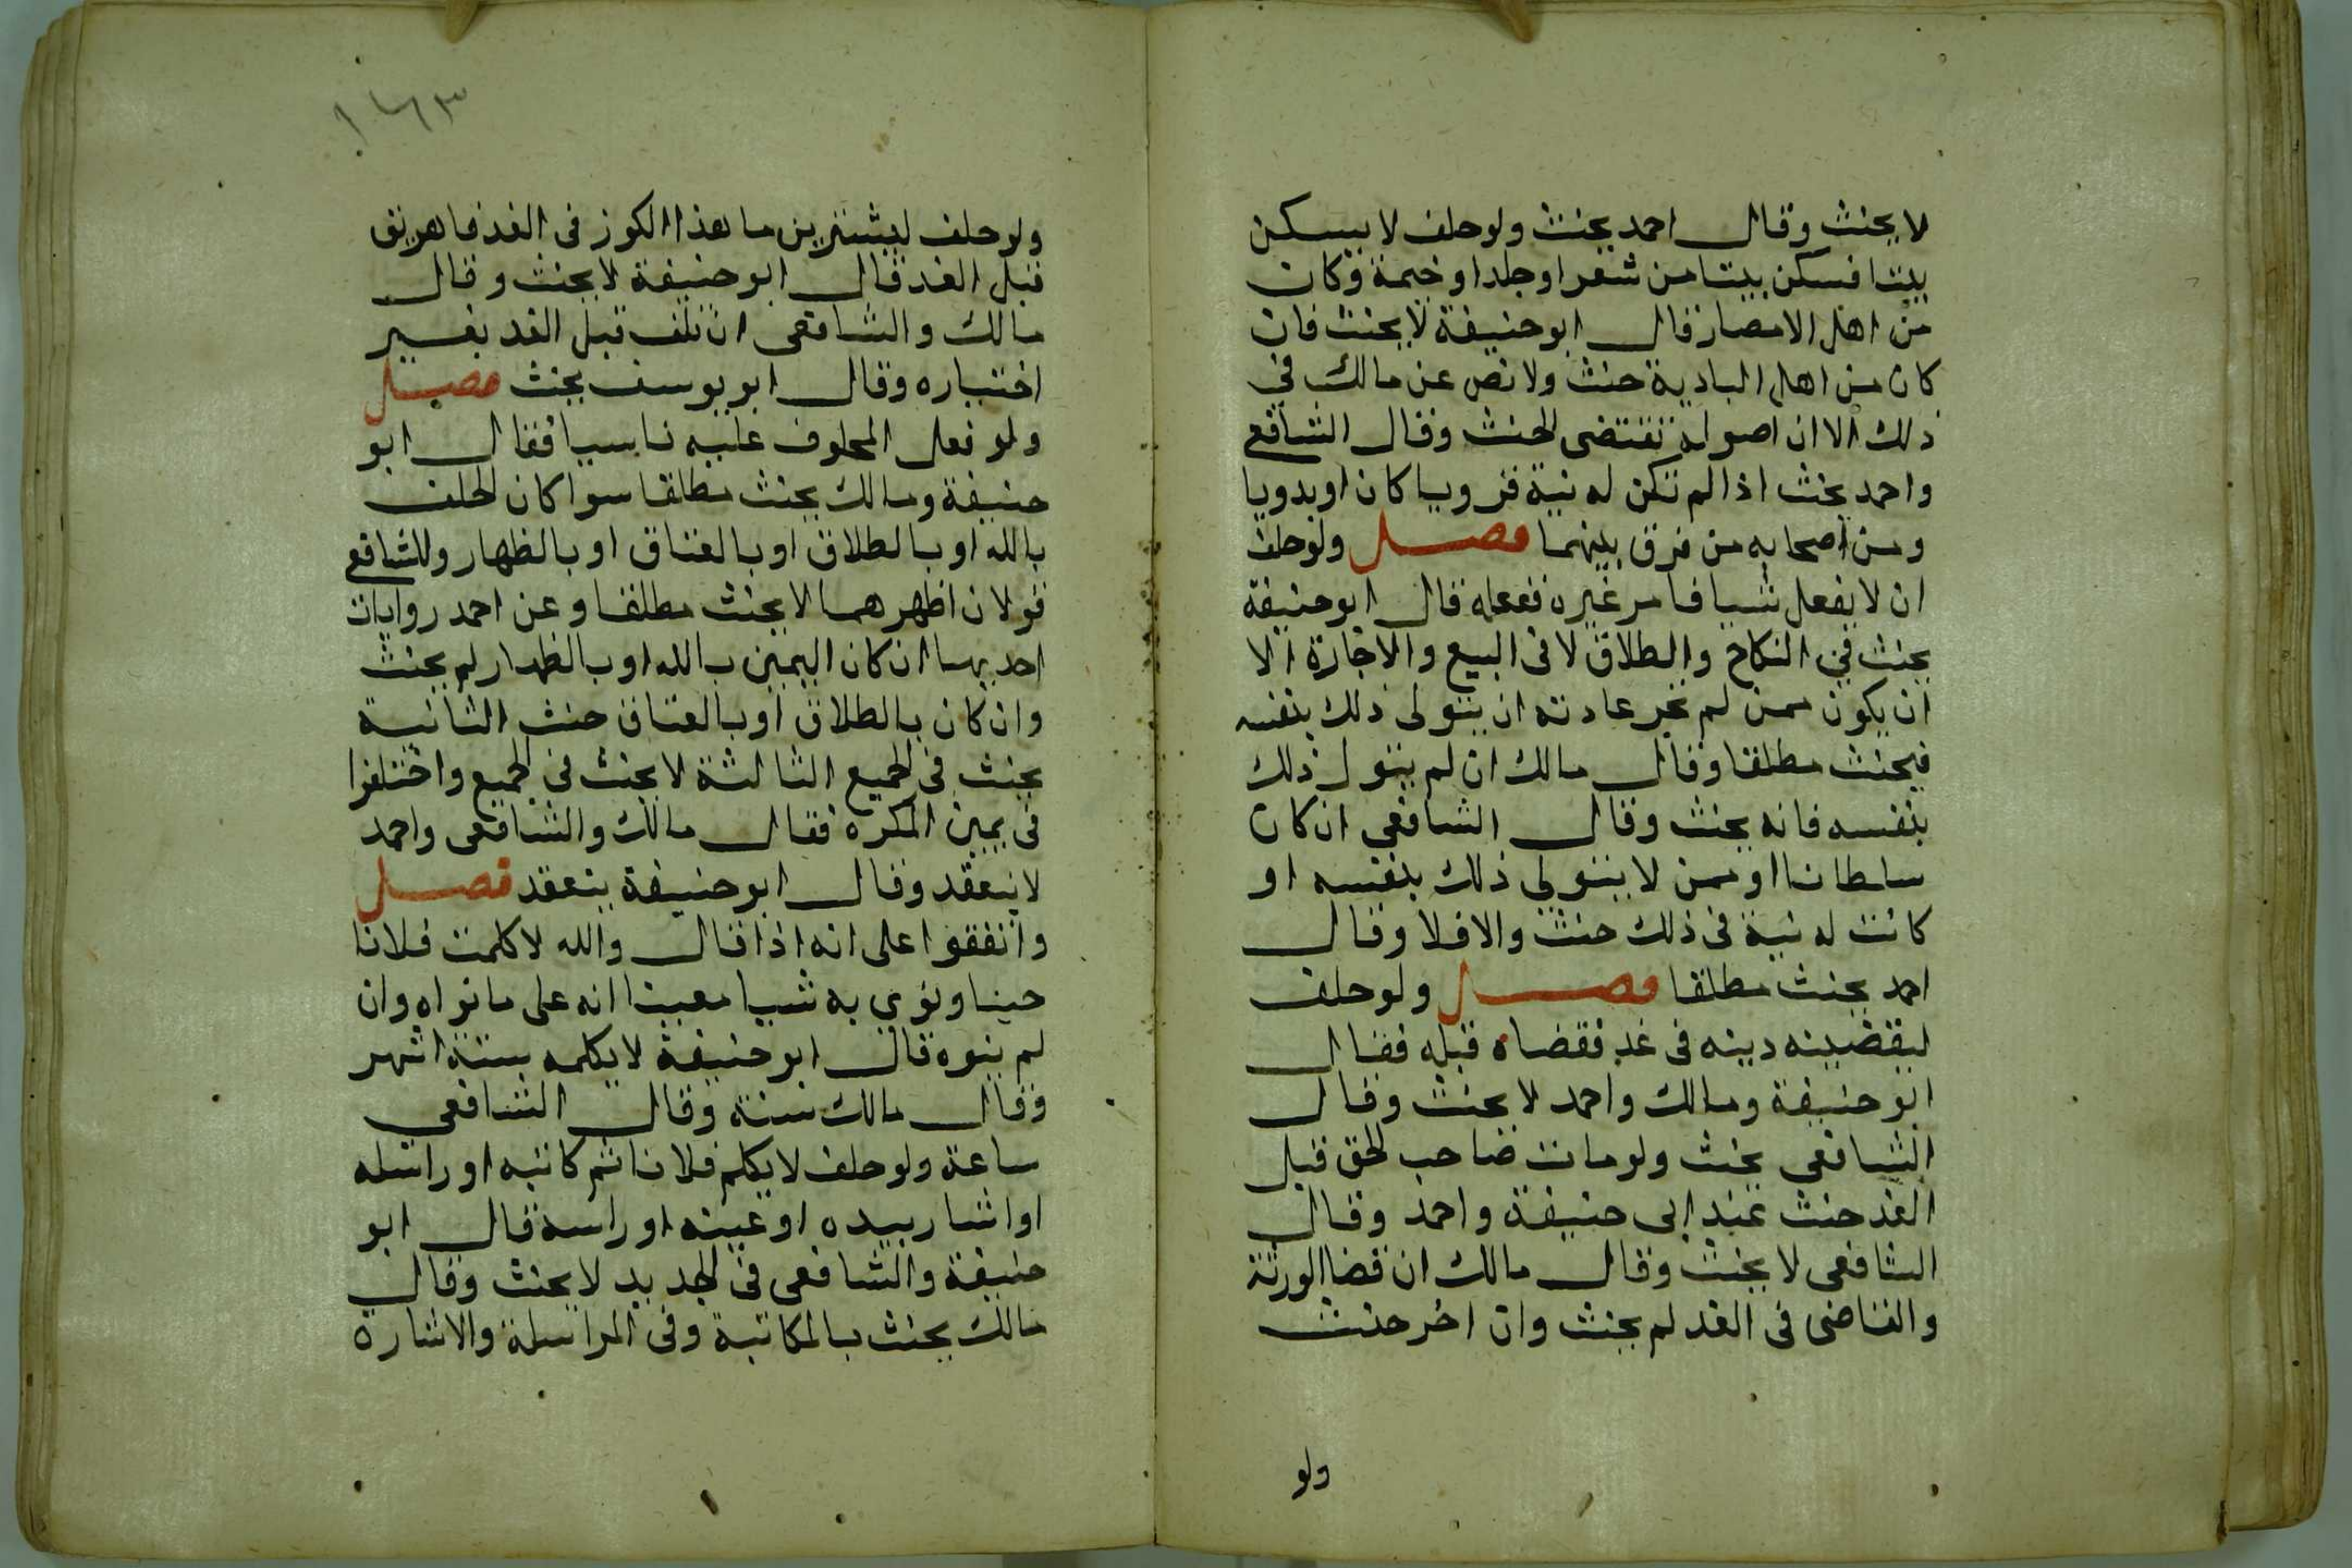 لا يحنث وقال احمد يحنث ولو حلف لا يسكن
بيتا فسكن بيتا من شعر او جلد او خيمة وكان
من اهل الامصار فال ابو حنيفة لا يحنث فان
كان من اهل البادية حنث ولا نص عن مالك في
ذلك الا ان اصوله تقتضى الحنث وقال الشافعي
واحمد يحنث اذا لم تكن له نية قرويا كان او بدويا
ومن اصحابه من فرق بينهما فصل ولو حلف
ان لا يفعل شيا فامر غيره ففعله قال ابو حنيفة
يحنث في النكاح والطلاق لا فى البيع والاجارة الا
ان يكون ممن لم تجر عادته ان يتولى ذلك بنفسه
فيحنث مطلقا وقال مالك ان لم يتول ذلك
بنفسه فانه يحنث وقال الشافعي ان كان
سلطانا او ممن لا يتولى ذلك بنفسه او
كانت له نية فى ذلك حنث والا فلا وقال
احمد يحنث مطلقا فصل ولو حلف
ليقضينه دينه فى غد فقضاه قبله فقال
ابو حنيفة ومالك واحمد لا يحنث وقال
الشافعى يحنث ولو مات صاحب الحق قبل
الغد حنث عند ابى حنيفة واحمد وقال
الشافعى لا يحنث وقال مالك ان قضا الورثة
والقاضى فى الغد لم يحنث وان اخر حنث
ولو
١٦٣
ولو حلف ليشربن ما هذا الكوز فى الغد فاهريق
قبل الغد قال ابو حنيفة لا يحنث وقال
مالك والشافعى ان تلف قبل الغد بغير
اختياره وقال ابو يوسف يحنث فصل
ولو فعل المحلوف عليه ناسيا فقال ابو
حنيفة ومالك يحنث مطلقا سوا كان الحلف
بالله او بالطلاق او بالعتاق او بالظهار وللشافعي
قولان اظهرهما لا يحنث مطلقا وعن احمد روايات
احديها ان كان اليمين بالله او بالظهار لم يحنث
وان كان بالطلاق او بالعتاق حنث الثانية
يحنث فى الجميع الثالثة لا يحنث فى الجميع واختلفوا
فى يمين المكره فقال مالك والشافعى واحمد
لا ينعقد وقال ابو حنيفة ينعقد فصل
واتفقوا على انه اذا قال والله لا كلمت فلانا
حينا ونوي به شيا معينا انه على ما نواه وان
لم ينوه قال ابو حنيفة لا يكلمه ستة اشهر
وقال مالك سنة وقال الشافعي
ساعة ولو حلف لا يكلم فلانا ثم كاتبه او راسله
او اشار بيده او عينه او راسه قال ابو
حنيفة والشافعى فى الجديد لا يحنث وقال
مالك يحنث بالمكاتبة وفى المراسلة والاشارة